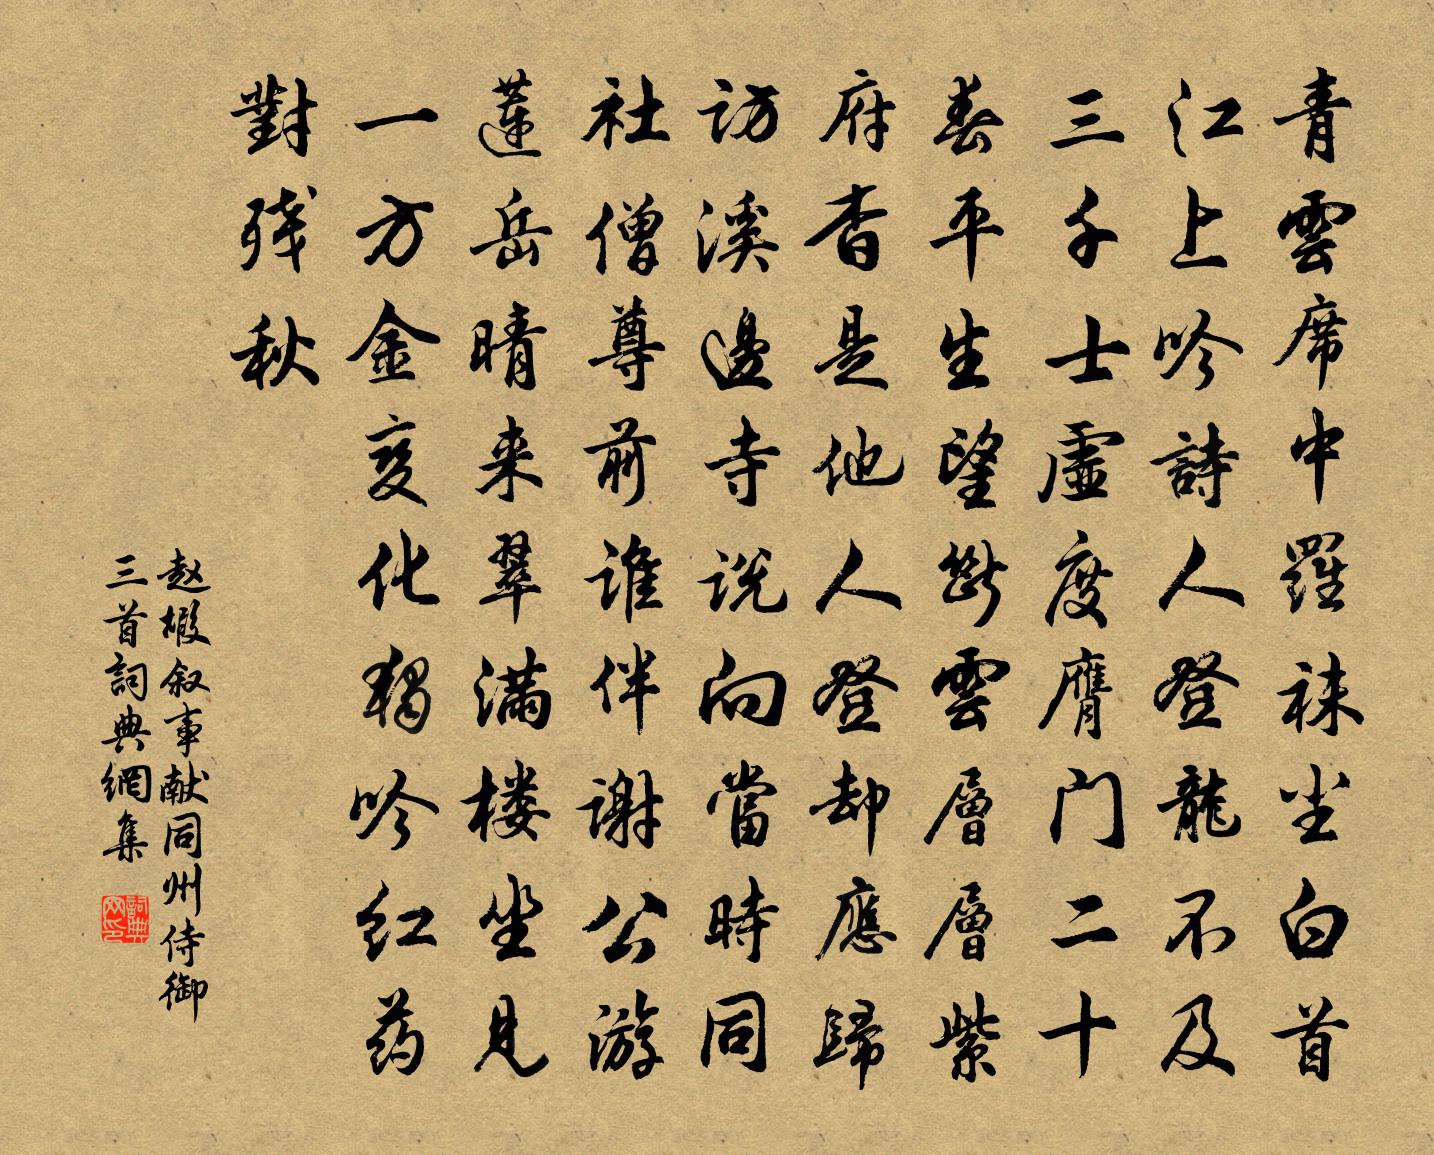 青雲席中羅袜尘白首
江上吟詩人登龍不及
三千士虛度膺门二十
春平生望斷雲層層紫
府杳是他人登却應歸
访溪邊寺说向當時同
社僧尊前谁伴谢公游
蓮岳晴来翠满楼坐見
一方金变化獨吟红药
對残秋
赵嘏叙事献同州侍御
三首詞典網集
詞典网印